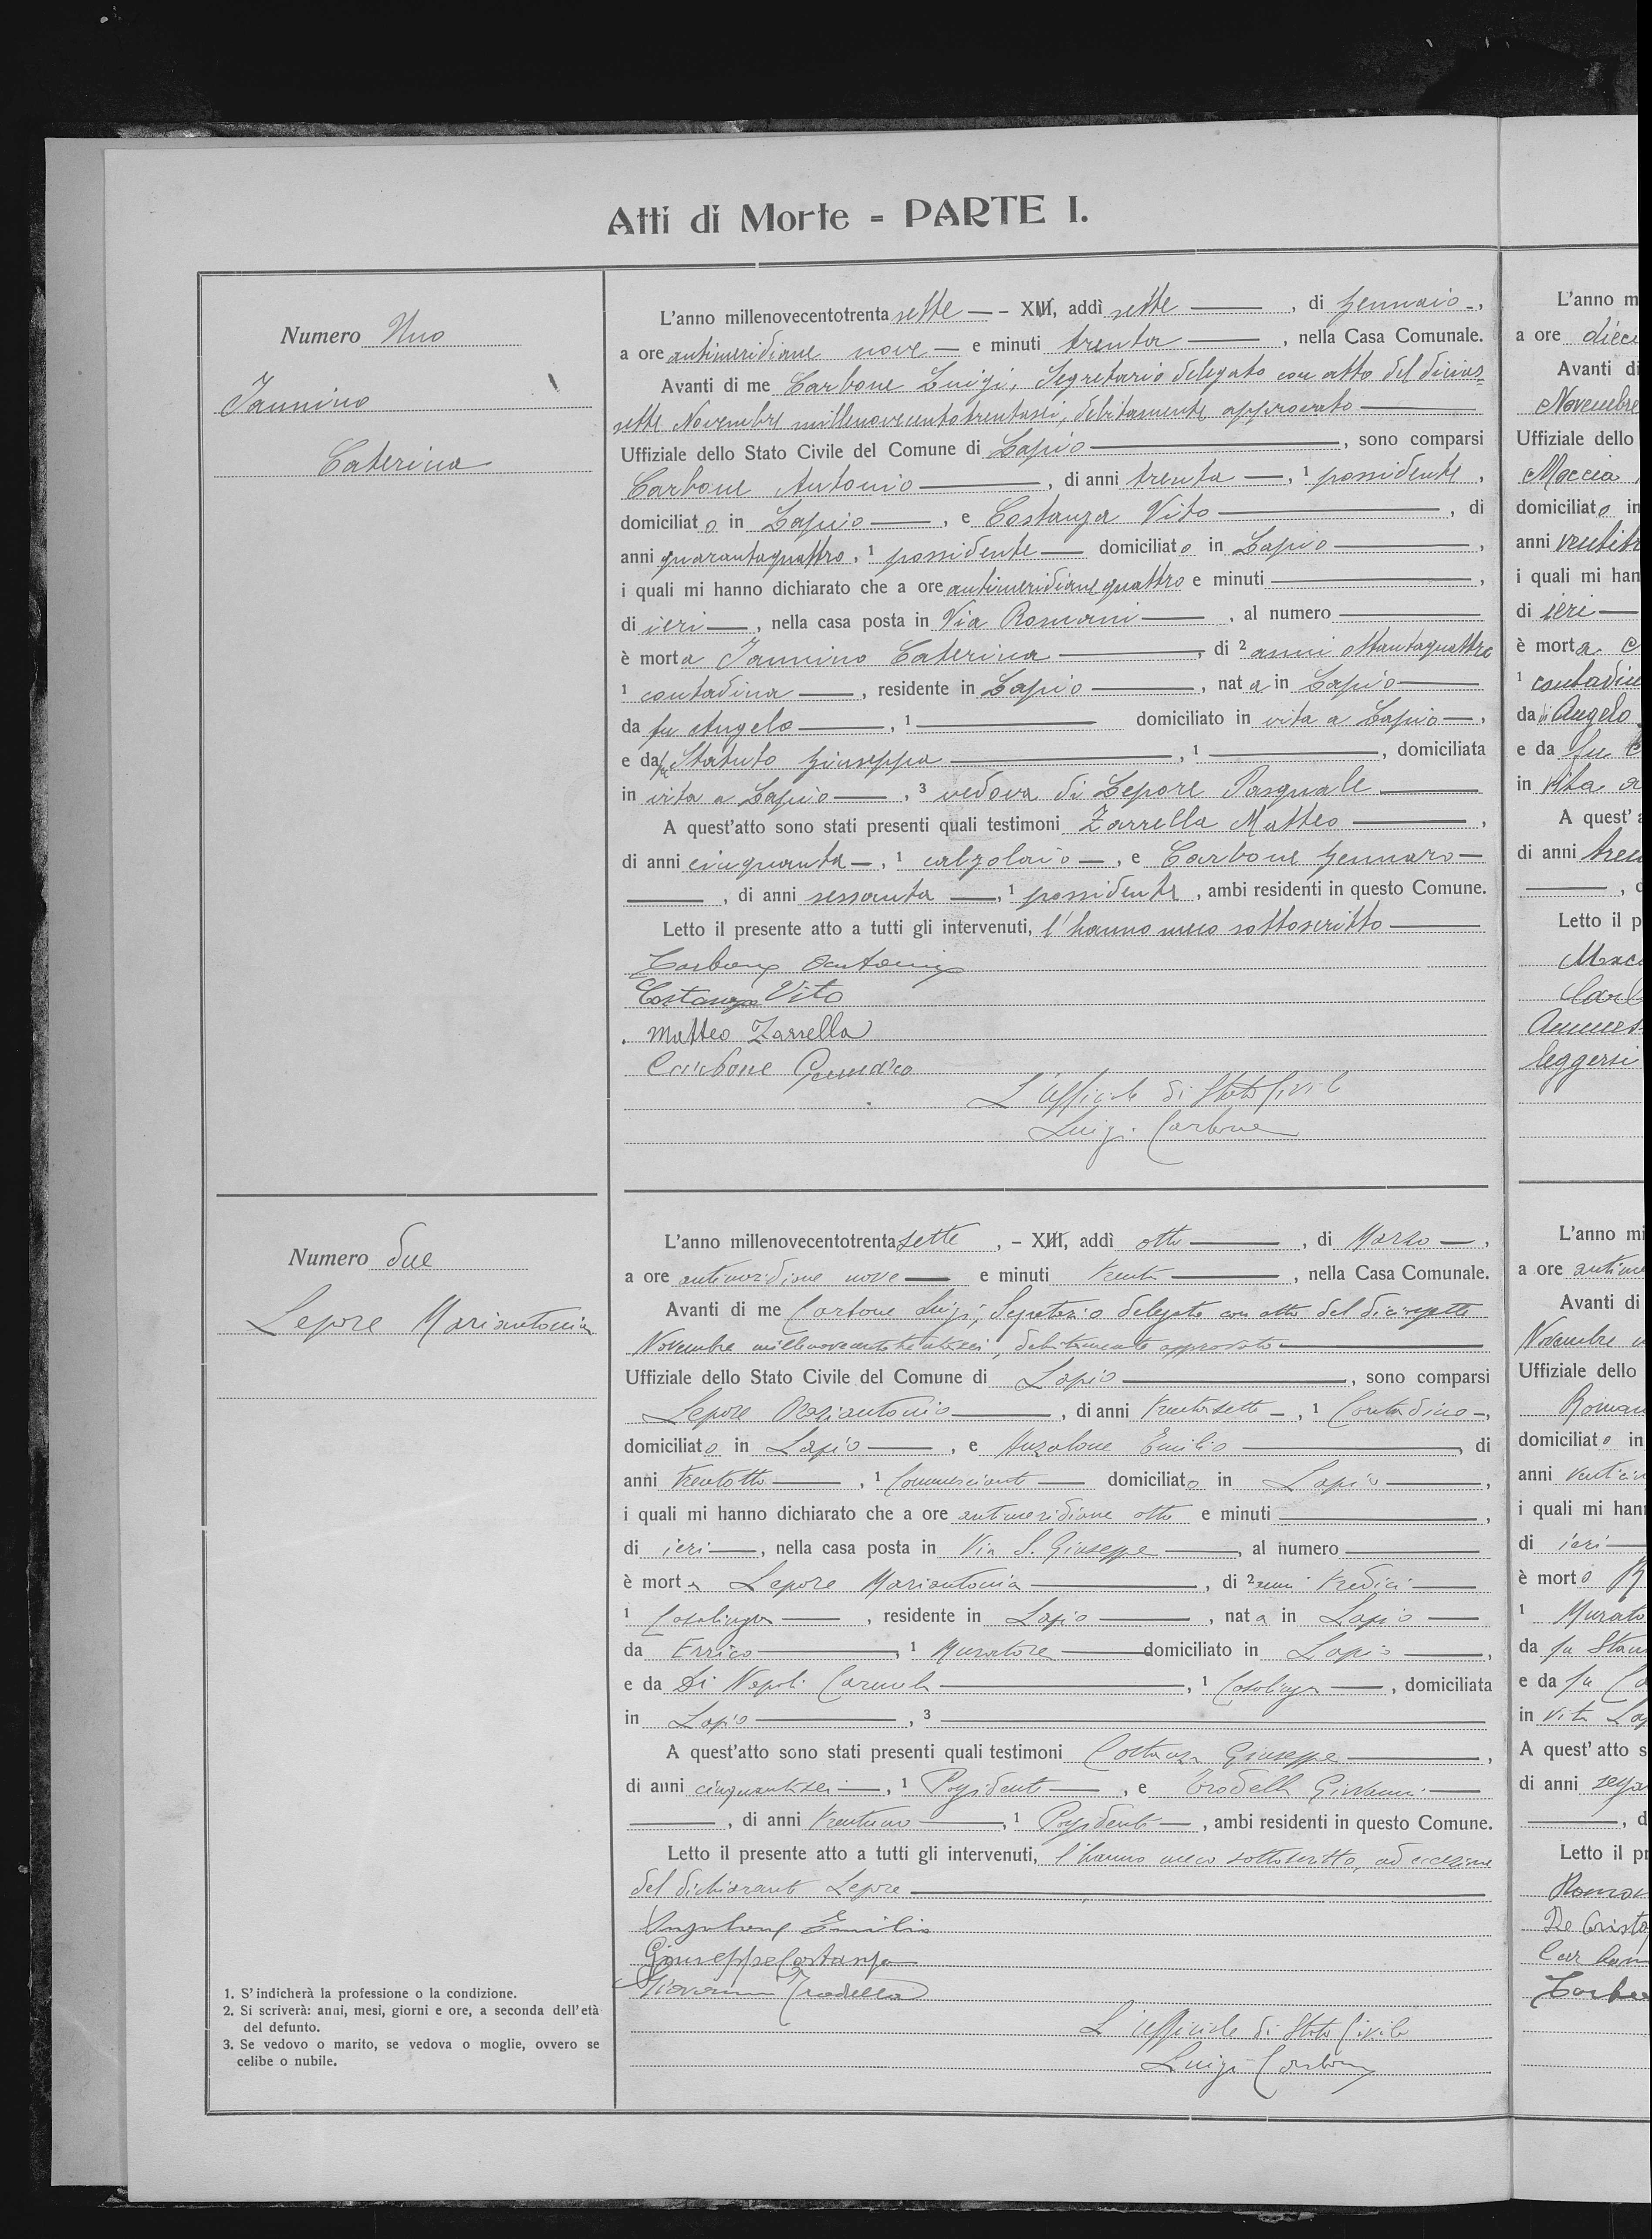 Atti di Morte - PARTE I.
Numero Uno
Iannino
Caterina
L'anno millenovecentotrenta sette — - XIII, addì sette —, di Gennaio -,
a ore antimeridiane nove — e minuti trenta —, nella Casa Comunale.
Avanti di me Carbone Luigi, Segretario delegato con atto del dicias=
sette Novembre millenovecentotrentasei, debitamente approvato —
Uffiziale dello Stato Civile del Comune di Lapio —, sono comparsi
Carbone Antonio —, di anni trenta —, 1 possidente,
domiciliato in Lapio —, e Costanza Vito —, di
anni quarantaquattro, 1 possidente — domiciliato in Lapio —,
i quali mi hanno dichiarato che a ore antimeridiane quattro e minuti —,
di ieri —, nella casa posta in Via Romani —, al numero —
è morta Iannino Caterina —, di 2 anni ottantaquattro
1 contadina —, residente in Lapio —, nata in Lapio —
da fu Angelo —, 1 — domiciliato in vita a Lapio —,
e da fu Statuto Giuseppa —, 1 —, domiciliata
in vita a Lapio —, 3 vedova di Lepore Pasquale —
A quest'atto sono stati presenti quali testimoni Zarrella Matteo —,
di anni cinquanta —, 1 calzolaio —, e Carbone Gennaro —
—, di anni sessanta —, 1 possidente, ambi residenti in questo Comune.
Letto il presente atto a tutti gli intervenuti, l'hanno meco sottoscritto —
Carbone Antonio
Costanza Vito
Matteo Zarrella
Carbone Gennaro
L'Ufficiale di Stato Civile
Luigi Carbone
Numero due
Lepore Mariantonia
L'anno millenovecentotrenta sette, - XIII, addì otto —, di Marzo —,
a ore antimeridiane nove — e minuti trenta —, nella Casa Comunale.
Avanti di me Carbone Luigi, Segretario delegato con atto del diciassette
Novembre millenovecentotrentasei, debitamente approvato —
Uffiziale dello Stato Civile del Comune di Lapio —, sono comparsi
Lepore Mariantonio —, di anni trentasette —, 1 Contadino —,
domiciliato in Lapio —, e Anzalone Emilio —, di
anni trentotto —, 1 Commerciante — domiciliato in Lapio —,
i quali mi hanno dichiarato che a ore antimeridiane otto e minuti —,
di ieri —, nella casa posta in Via S. Giuseppe —, al numero —
è morta Lepore Mariantonia —, di 2 anni tredici —
1 Casalinga —, residente in Lapio —, nata in Lapio —
da Errico —, 1 Muratore — domiciliato in Lapio —,
e da Di Napoli Carmela —, 1 Casalinga —, domiciliata
in Lapio —, 3 —
A quest'atto sono stati presenti quali testimoni Costanza Giuseppe —,
di anni cinquantasei —, 1 Possidente —, e Trodella Giovanni —
—, di anni trentuno —, 1 Possidente —, ambi residenti in questo Comune.
Letto il presente atto a tutti gli intervenuti, l'hanno meco sottoscritto, ad eccezione
del dichiarante Lepore —
Anzalone Emilio
Giuseppe Costanza
Giovanni Trodella
L'Ufficiale di Stato Civile
Luigi Carbone
1. S'indicherà la professione o la condizione.
2. Si scriverà: anni, mesi, giorni e ore, a seconda dell'età
del defunto.
3. Se vedovo o marito, se vedova o moglie, ovvero se
celibe o nubile.
L'anno m
a ore dieci
Avanti di
Novembre
Uffiziale dello
Moccia
domiciliato in
anni ventitr
i quali mi han
di ieri —
è morta C
1 contadin
da di Angelo
e da fu C
in vita a
A quest' a
di anni tren
Letto il p
leggersi
L'anno mi
a ore antime
Avanti di
Novembre
Uffiziale dello
Roman
domiciliato in
anni
i quali mi han
di ieri —
è morto
1 Murato
da fu Stan
e da fu Ca
in vita Lap
A quest' atto s
di anni
Letto il pr
Roman
De Cristo
Carbon
Carbo